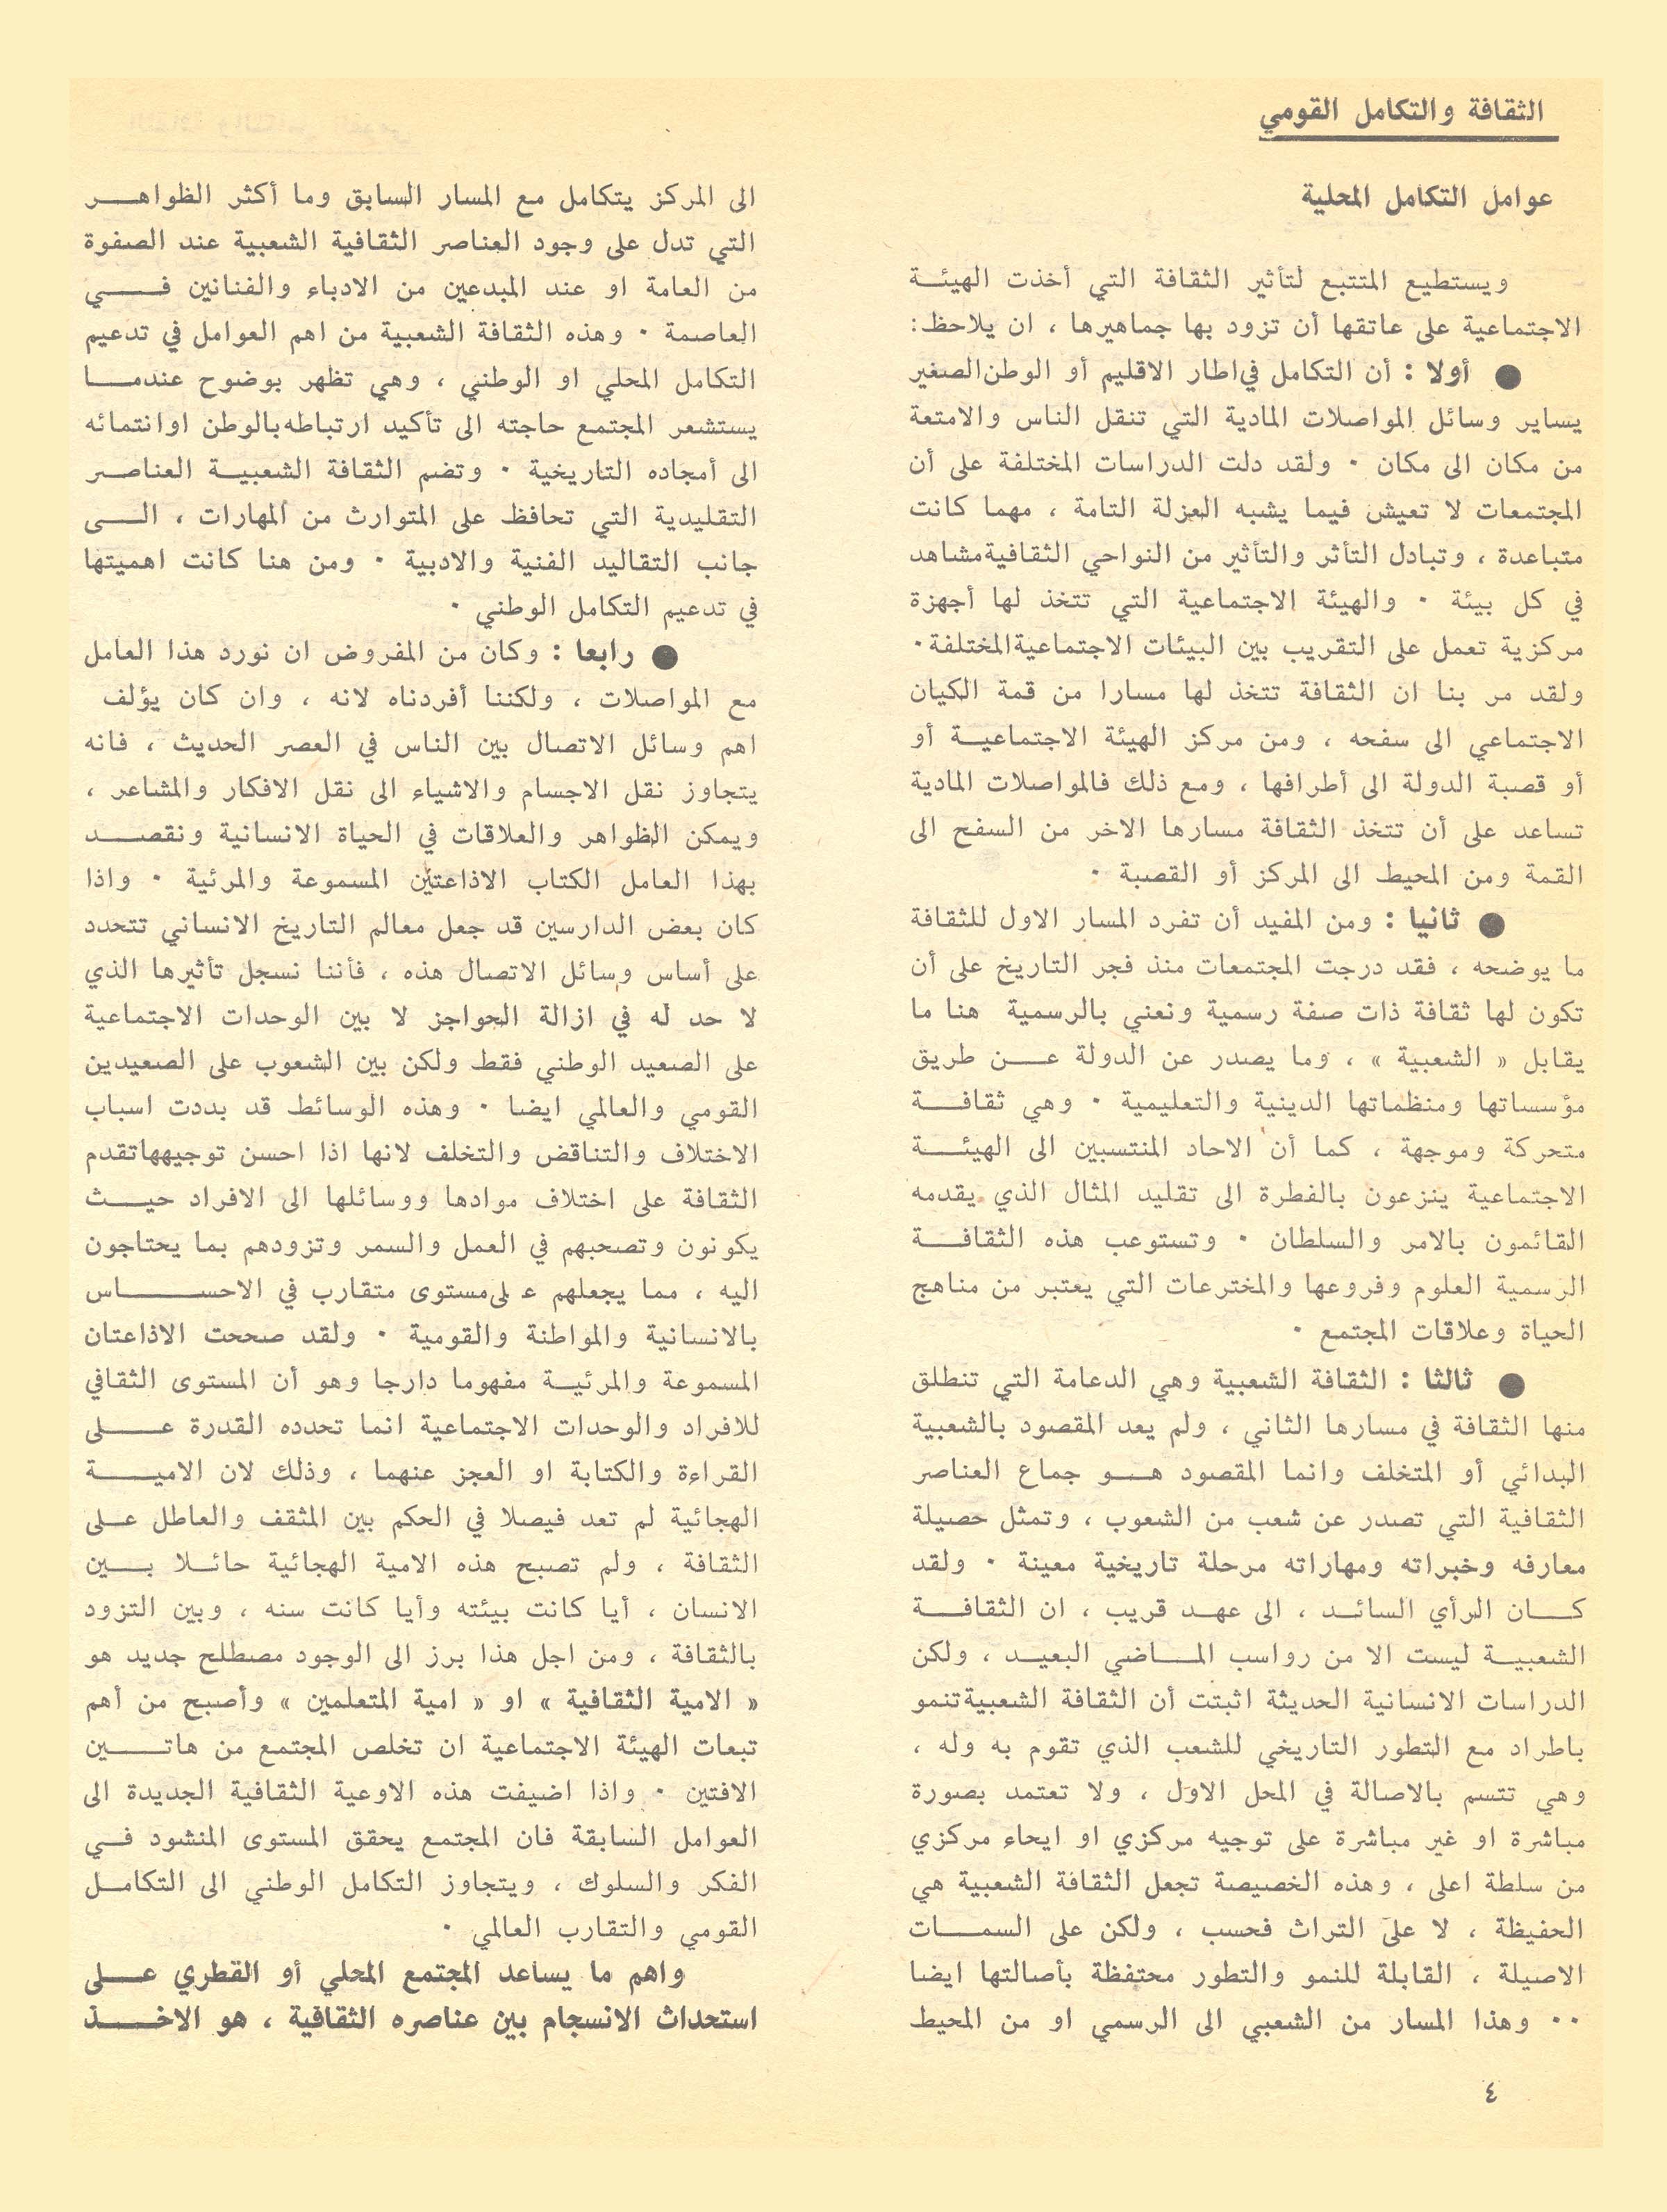 الثقافة والتكامل القومي
عوامل التكامل المحلية
ويستطيع المتتبع لتأثير الثقافة التي أخذت الهيئة
الاجتماعية على عاتقها أن تزود بها جماهيرها ، ان يلاحظ:
● أولا : أن التكامل في اطار الاقليم أو الوطن الصغير
يساير وسائل المواصلات المادية التي تنقل الناس والامتعة
من مكان الى مكان · ولقد دلت الدراسات المختلفة على أن
المجتمعات لا تعيش فيما يشبه العزلة التامة ، مهما كانت
متباعدة ، وتبادل التأثر والتأثير من النواحي الثقافية مشاهد
في كل بيئة · والهيئة الاجتماعية التي تتخذ لها أجهزة
مركزية تعمل على التقريب بين البيئات الاجتماعية المختلفة ·
ولقد مر بنا ان الثقافة تتخذ لها مسارا من قمة الكيان
الاجتماعي الى سفحه ، ومن مركز الهيئة الاجتماعية أو
أو قصبة الدولة الى أطرافها ، ومع ذلك فالمواصلات المادية
تساعد على أن تتخذ الثقافة مسارها الاخر من السفح الى
القمة ومن المحيط الى المركز أو القصبة ·
● ثانيا : ومن المفيد أن تفرد المسار الاول للثقافة
ما يوضحه ، فقد درجت المجتمعات منذ فجر التاريخ على أن
تكون لها ثقافة ذات صفة رسمية ونعني بالرسمية هنا ما
يقابل « الشعبية » ، وما يصدر عن الدولة عن طريق
مؤسساتها ومنظماتها الدينية والتعليمية · وهي ثقافة
متحركة وموجهة ، كما أن الاحاد المنتسبين الى الهيئة
الاجتماعية ينزعون بالفطرة الى تقليد المثال الذي يقدمه
القائمون بالامر والسلطان · وتستوعب هذه الثقافة
الرسمية العلوم وفروعها والمخترعات التي يعتبر من مناهج
الحياة وعلاقات المجتمع ·
● ثالثا : الثقافة الشعبية وهي الدعامة التي تنطلق
منها الثقافة في مسارها الثاني ، ولم يعد المقصود بالشعبية
البدائي أو المتخلف وانما المقصود هو جماع العناصر
الثقافية التي تصدر عن شعب من الشعوب ، وتمثل حصيلة
معارفه وخبراته ومهاراته مرحلة تاريخية معينة · ولقد
كان الرأي السائد ، الى عهد قريب ، ان الثقافة
الشعبية ليست الا من رواسب الماضي البعيد ، ولكن
الدراسات الانسانية الحديثة اثبتت أن الثقافة الشعبية تنمو
باطراد مع التطور التاريخي للشعب الذي تقوم به وله ،
وهي تتسم بالاصالة في المحل الاول ، ولا تعتمد بصورة
مباشرة او غير مباشرة على توجيه مركزي او ايحاء مركزي
من سلطة اعلى ، وهذه الخصيصة تجعل الثقافة الشعبية هي
الحفيظة ، لا على التراث فحسب ، ولكن على السمات
الاصيلة ، القابلة للنمو والتطور محتفظة بأصالتها ايضا
·· وهذا المسار من الشعبي الى الرسمي او من المحيط
الى المركز يتكامل مع المسار السابق وما أكثر الظواهر
التي تدل على وجود العناصر الثقافية الشعبية عند الصفوة
من العامة او عند المبدعين من الادباء والفنانين في
العاصمة · وهذه الثقافة الشعبية من اهم العوامل في تدعيم
التكامل المحلي او الوطني ، وهي تظهر بوضوح عندما
يستشعر المجتمع حاجته الى تأكيد ارتباطه بالوطن اوانتمائه
الى أمجاده التاريخية · وتضم الثقافة الشعبية العناصر
التقليدية التي تحافظ على المتوارث من المهارات ، الى
جانب التقاليد الفنية والادبية · ومن هنا كانت اهميتها
في تدعيم التكامل الوطني ·
● رابعا : وكان من المفروض ان نورد هذا العامل
مع المواصلات ، ولكننا أفردناه لانه ، وان كان يؤلف
اهم وسائل الاتصال بين الناس في العصر الحديث ، فانه
يتجاوز نقل الاجسام والاشياء الى نقل الافكار والمشاعر ،
ويمكن الظواهر والعلاقات في الحياة الانسانية ونقصد
بهذا العامل الكتاب الاذاعتين المسموعة والمرئية · واذا
كان بعض الدارسين قد جعل معالم التاريخ الانساني تتحدد
على أساس وسائل الاتصال هذه ، فأننا نسجل تأثيرها الذي
لا حد له في ازالة الحواجز لا بين الوحدات الاجتماعية
على الصعيد الوطني فقط ولكن بين الشعوب على الصعيدين
القومي والعالمي ايضا · وهذه الوسائط قد بددت اسباب
الاختلاف والتناقض والتخلف لانها اذا احسن توجيهها تقدم
الثقافة على اختلاف موادها ووسائلها الى الافراد حيث
يكونون وتصحبهم في العمل والسمر وتزودهم بما يحتاجون
اليه ، مما يجعلهم على مستوى متقارب في الاحساس
بالانسانية والمواطنة والقومية · ولقد صححت الاذاعتان
المسموعة والمرئية مفهوما دارجا وهو أن المستوى الثقافي
للافراد والوحدات الاجتماعية انما تحدده القدرة على
القراءة والكتابة او العجز عنهما ، وذلك لان الامية
الهجائية لم تعد فيصلا في الحكم بين المثقف والعاطل على
الثقافة ، ولم تصبح هذه الامية الهجائية حائلا بين
الانسان ، أيا كانت بيئته وأيا كانت سنه ، وبين التزود
بالثقافة ، ومن اجل هذا برز الى الوجود مصطلح جديد هو
« الامية الثقافية » او « امية المتعلمين » وأصبح من أهم
تبعات الهيئة الاجتماعية ان تخلص المجتمع من هاتين
الافتين · واذا اضيفت هذه الاوعية الثقافية الجديدة الى
العوامل السابقة فان المجتمع يحقق المستوى المنشود في
الفكر والسلوك ، ويتجاوز التكامل الوطني الى التكامل
القومي والتقارب العالمي ·
واهم ما يساعد المجتمع المحلي أو القطري على
استحداث الانسجام بين عناصره الثقافية ، هو الاخذ
٤